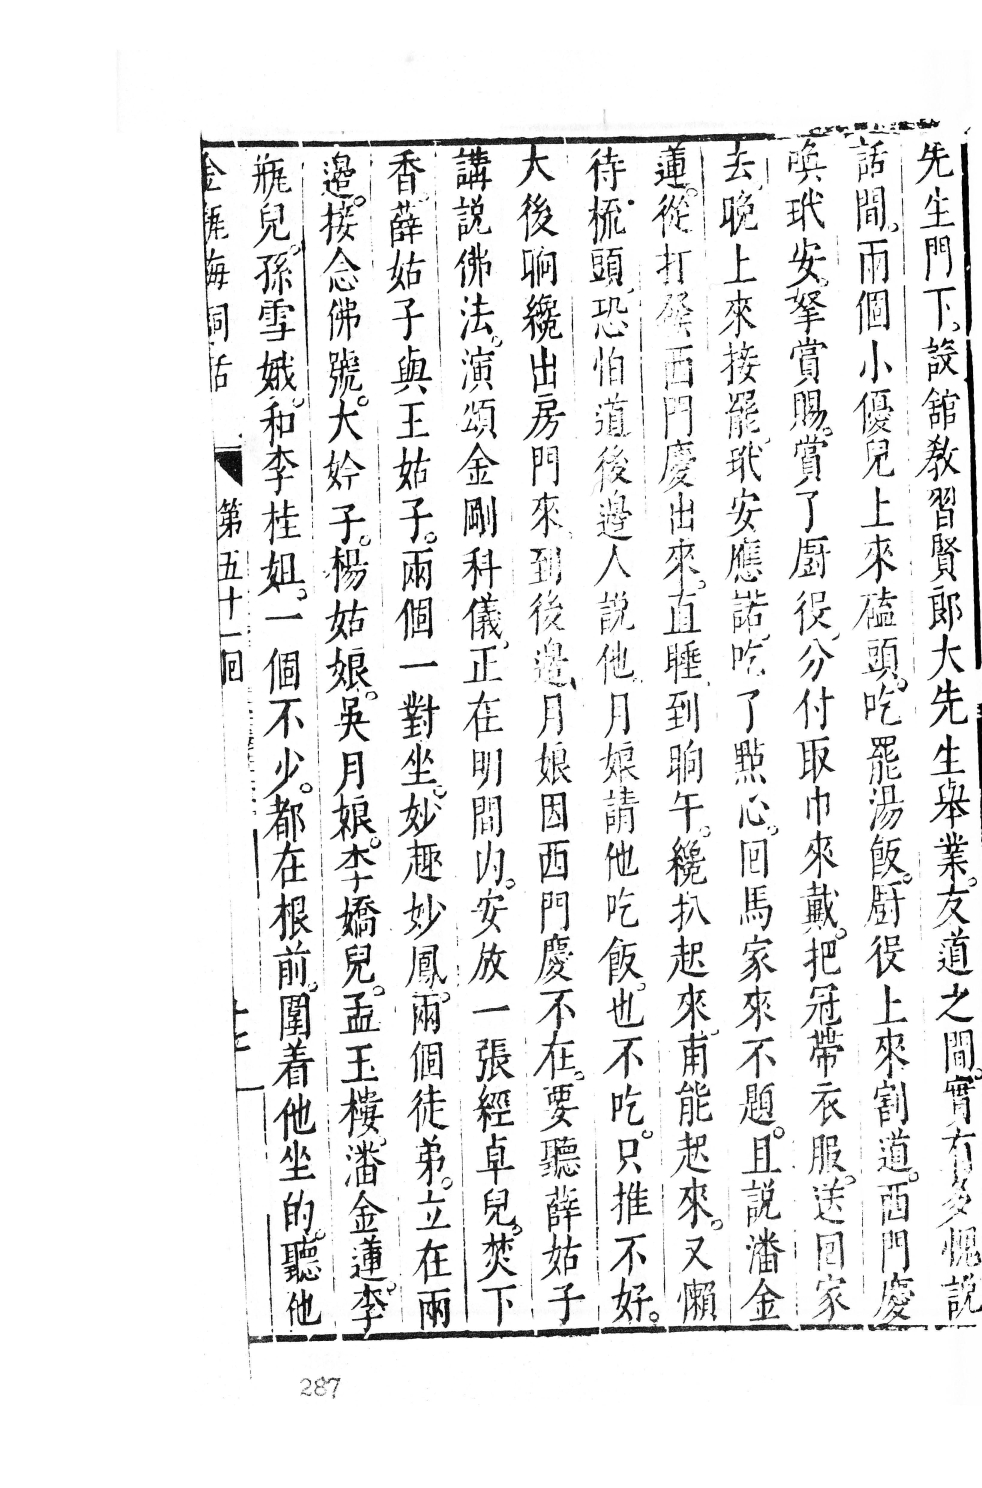 先生門下。設舘教習賢郎大先生舉業。友道之間。實有多愧說
話間。兩個小優兒上來磕頭。吃罷湯飯。厨役上來割道。西門慶
喚玳安。拏賞賜。賞了厨役。分付取巾來戴。把冠帶衣服。送回家
去。晚上來接罷。玳安應諾。吃了點心。回馬家來不題。且說潘金
蓮。從打發西門慶出來。直睡到晌午。纔扒起來。甫能起來。又懶
待梳頭。恐怕道後邊人說他。月娘請他吃飯。也不吃。只推不好。
大後晌纔出房門來。到後邊。月娘因西門慶不在。要聽薛姑子
講說佛法。演頌金剛科儀。正在明間內。安放一張經卓兒。焚下
香。薛姑子與王姑子。兩個一對坐。妙趣妙鳳。兩個徒弟。立在兩
邊。接念佛號。大妗子。楊姑娘。吳月娘。李嬌兒。孟玉樓。潘金蓮。李
瓶兒。孫雪娥。和李桂姐。一個不少。都在根前。圍着他坐的。聽他
金瓶梅詞話 第五十一回
287